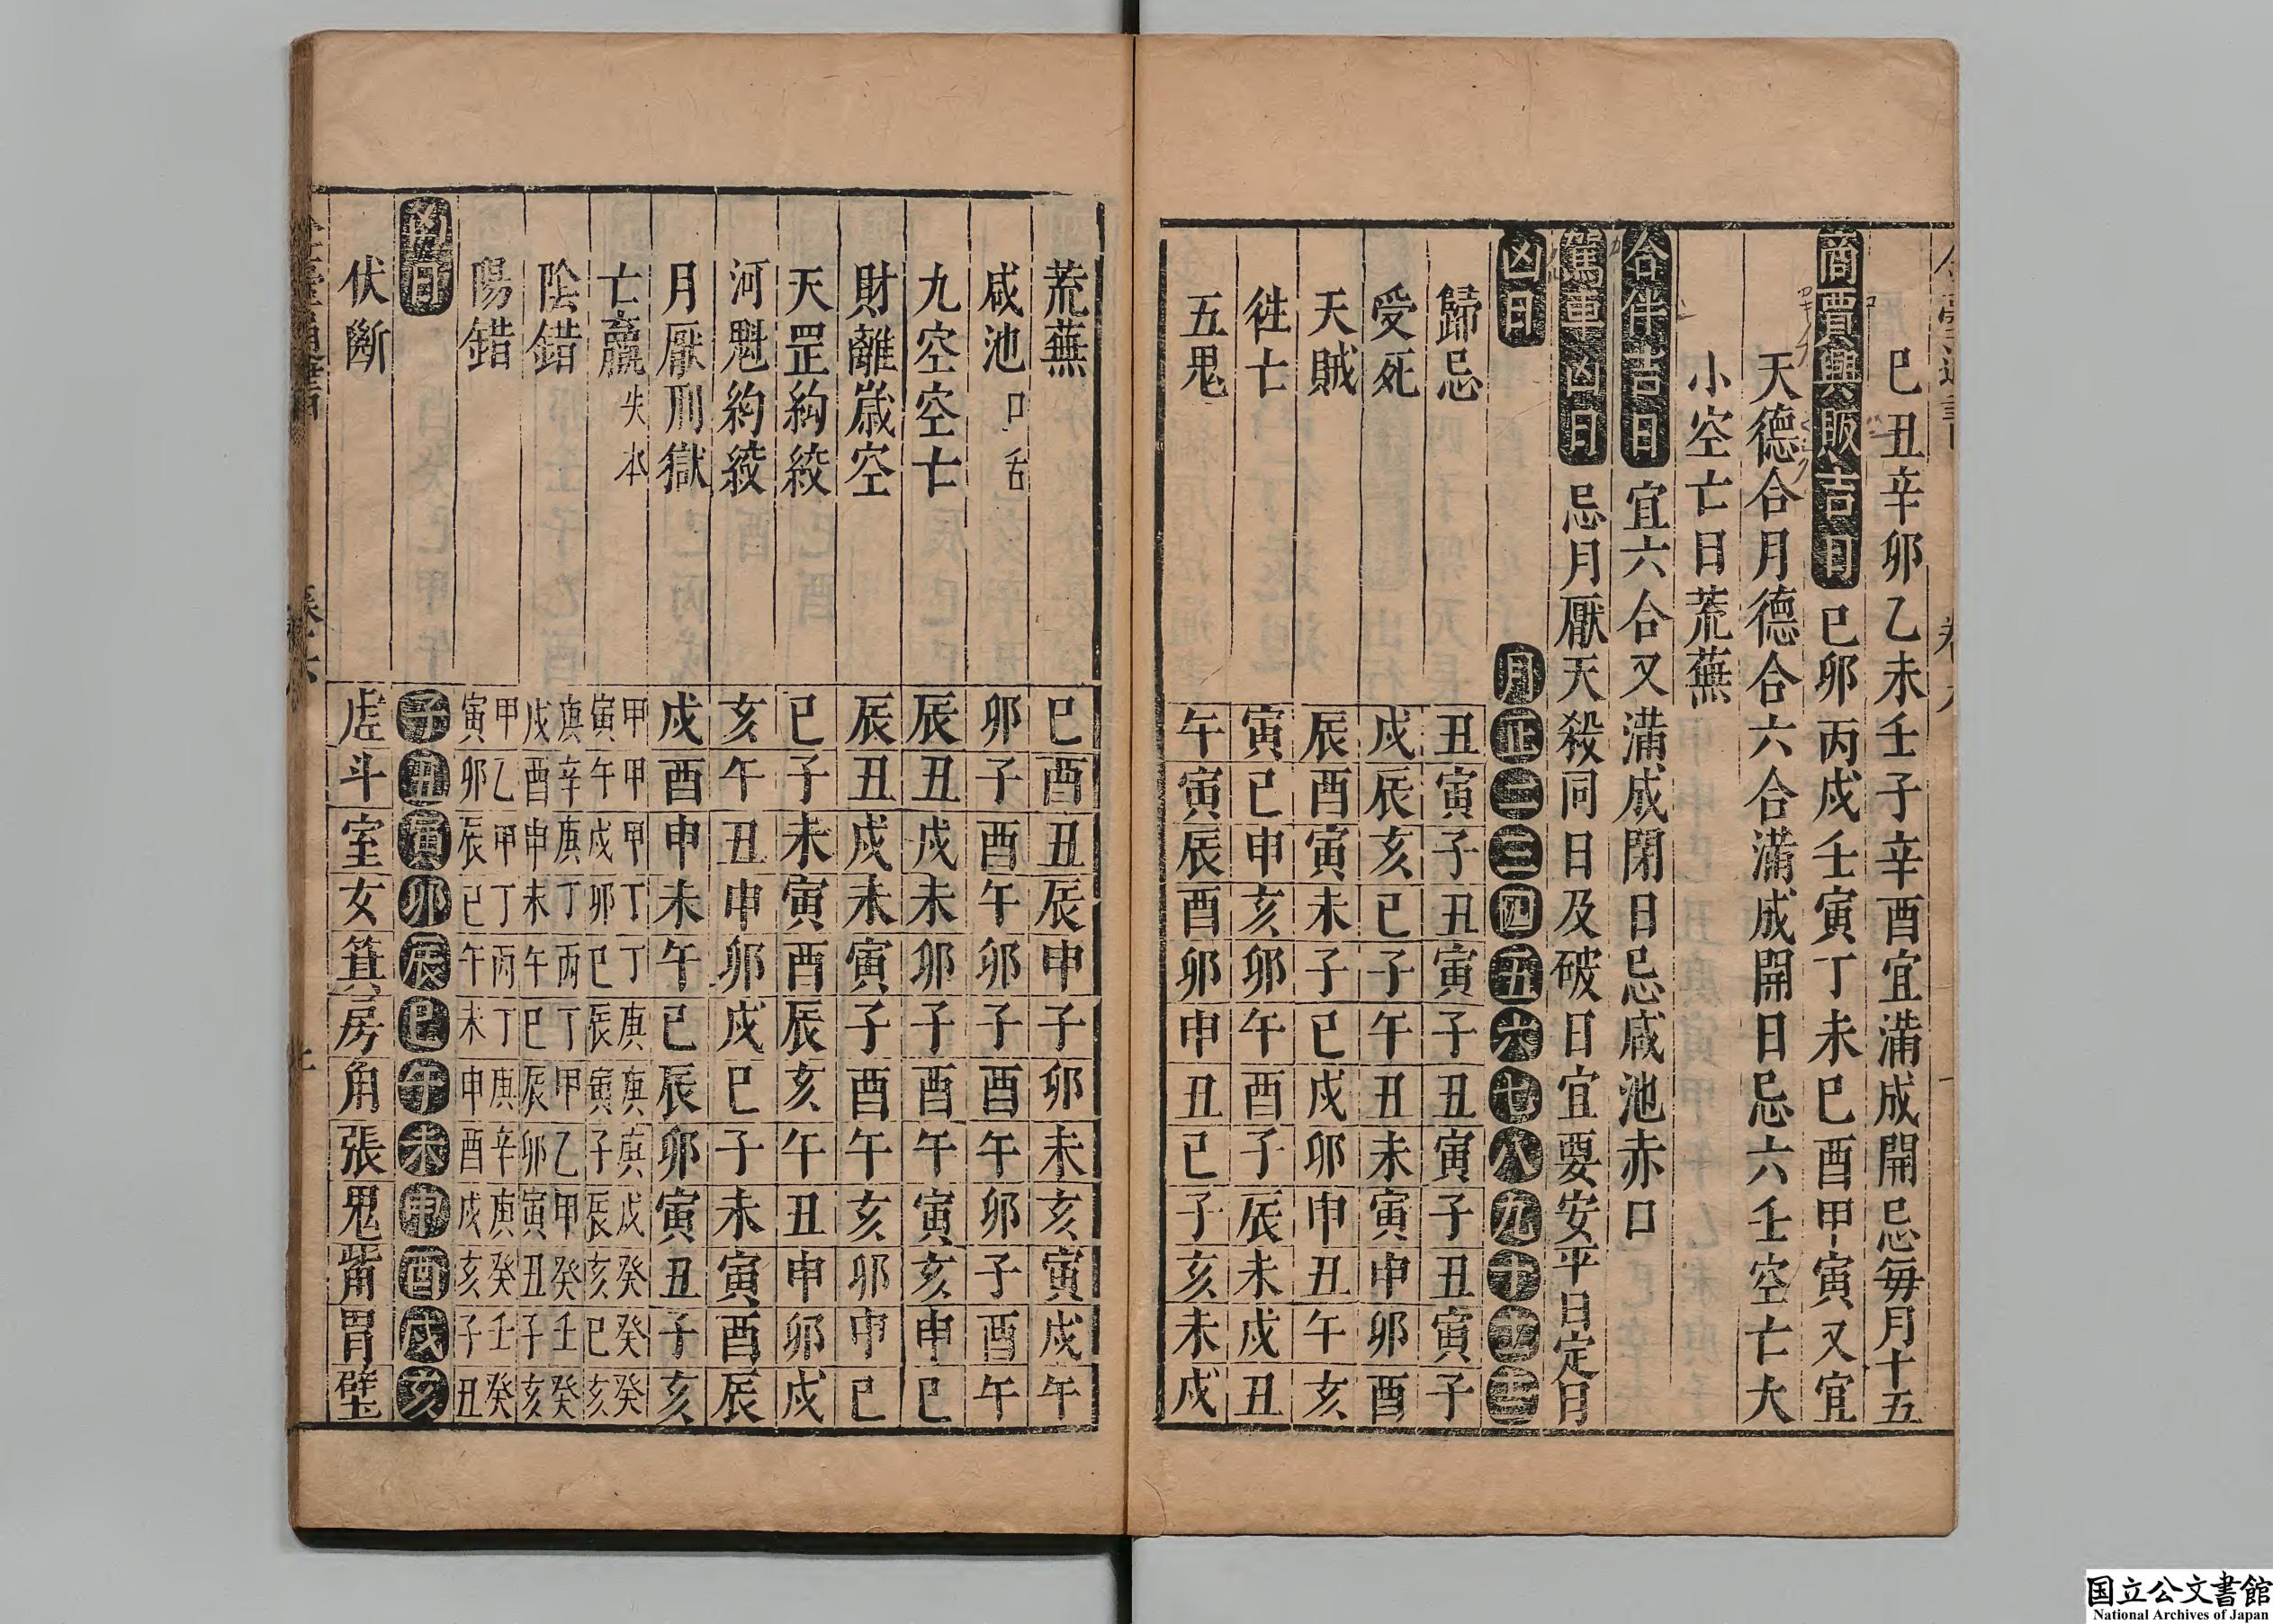 己丑辛卯乙未壬子辛酉宜滿成開忌每月十五
商賈興販吉日己卯丙戌壬寅丁未己酉甲寅又宜
天德合月德合六合滿成開日忌六壬空亡大
小空亡日荒蕪
合伴吉日宜六合又滿成閉日忌咸池赤口
駕車凶日忌月厭天殺同日及破日宜要安平日定日
凶日月正二三四五六七八九十十一十二
歸忌丑寅子丑寅子丑寅子丑寅子
受死戌辰亥巳子午丑未寅申卯酉
天賊辰酉寅未子巳戌卯申丑午亥
徃亡寅巳申亥卯午酉子辰未戌丑
五鬼午寅辰酉卯申丑巳子亥未戌
荒蕪巳酉丑辰申子卯未亥寅戌午
咸池口舌卯子酉午卯子酉午卯子酉午
九空空亡辰丑戌未卯子酉午寅亥申巳
財離歲空辰丑戌未寅子酉午亥卯申巳
天罡約絞巳子未寅酉辰亥午丑申卯戌
河魁約絞亥午丑申卯戌巳子未寅酉辰
月厭刑獄戌酉申未午巳辰卯寅丑子亥
亡蠃失本甲寅甲午甲戌丁卯丁巳庚辰庚寅庚子戊辰癸亥癸巳癸亥
陰錯庚戌辛酉庚申丁未丙午丁巳甲辰乙卯甲寅癸丑壬子癸亥
陽錯甲寅乙卯甲辰丁巳丙午丁未庚申辛酉庚戌癸亥壬子癸丑
凶日子丑寅卯辰巳午未申酉戌亥
伏斷虗斗室女箕房角張鬼觜胃壁
国立公文書館
National Archives of Japan